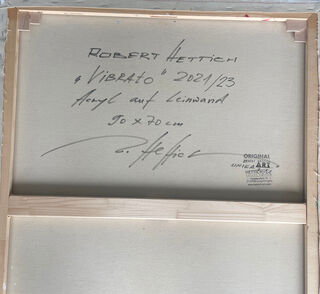 ROBERT HETTICH
„VIBRATO" 2021/23
Acryl auf Leinwand
90 x 70 cm
R. Hettich
ORIGINAL
UNIKAT ART